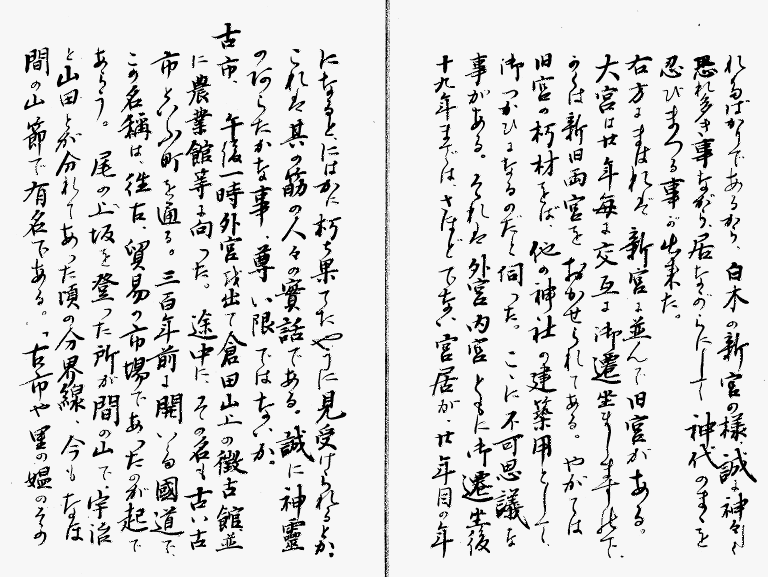 れるばかりであるから、白木の新宮の様誠に神々しく
恐れ多き事ながら、居ながらにして神代のまゝを
忍びまつる事が出来た。
右方にまはれば新宮に並んで旧宮がある。
大宮は廿年毎に交互に御遷坐まします
かくは新旧両宮をおかせられてある。やがては
旧宮の朽材をば、他の神社の建築用として、
御つかひになるのだと伺った。こゝに不可思議な
事がある。それは外宮内宮ともに御遷坐後
十九年までは、さほどでない宮居が、廿年目の年
になるとにはかに朽ち果てたやうに見受けられるとか。
これは其の筋の人々の實話である。誠に神靈
のあらたかな事、尊い限ではないか。
古市、午後一時外宮を出て倉田山上の徴古館並
に農業館等に向った。途中に、その名も古い古
市といふ町を通る。三百年前に開いた國道で、
この名稱は、往古、貿易の市場であったのが起で
あらう。尾の上坂を登った所が間の山で、宇治
と山田とが分れてあった頃の分界線、今もなほ
間の山節で有名である。「古市や里の媼のその